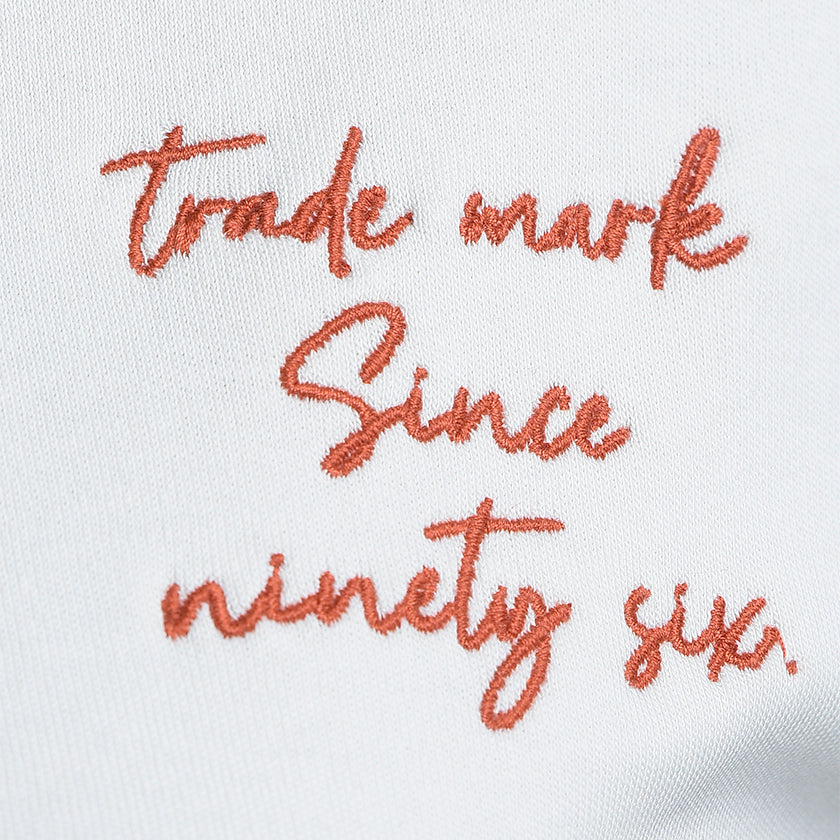 trade mark
Since
ninety six.